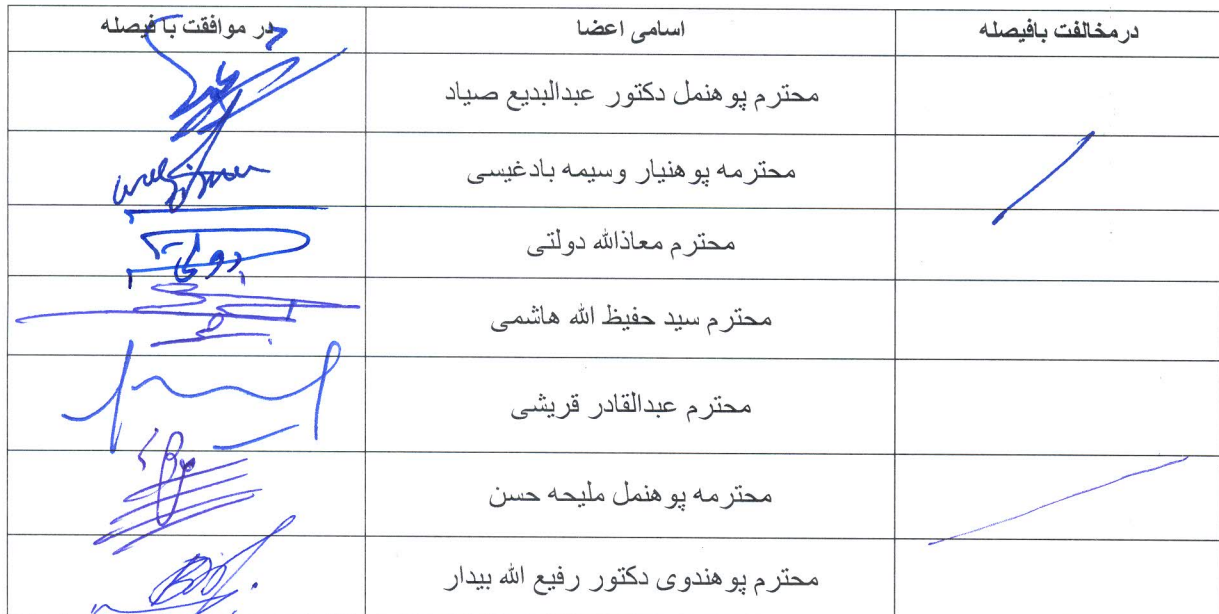 در موافقت با فیصله	اسامی اعضا	درمخالفت بافیصله
محترم پوهنمل دکتور عبدالبدیع صیاد
محترمه پوهنیار وسیمه بادغیسی
محترم معاذالله دولتی
محترم سید حفیظ الله هاشمی
محترم عبدالقادر قریشی
محترمه پوهنمل ملیحه حسن
محترم پوهندوی دکتور رفیع الله بیدار